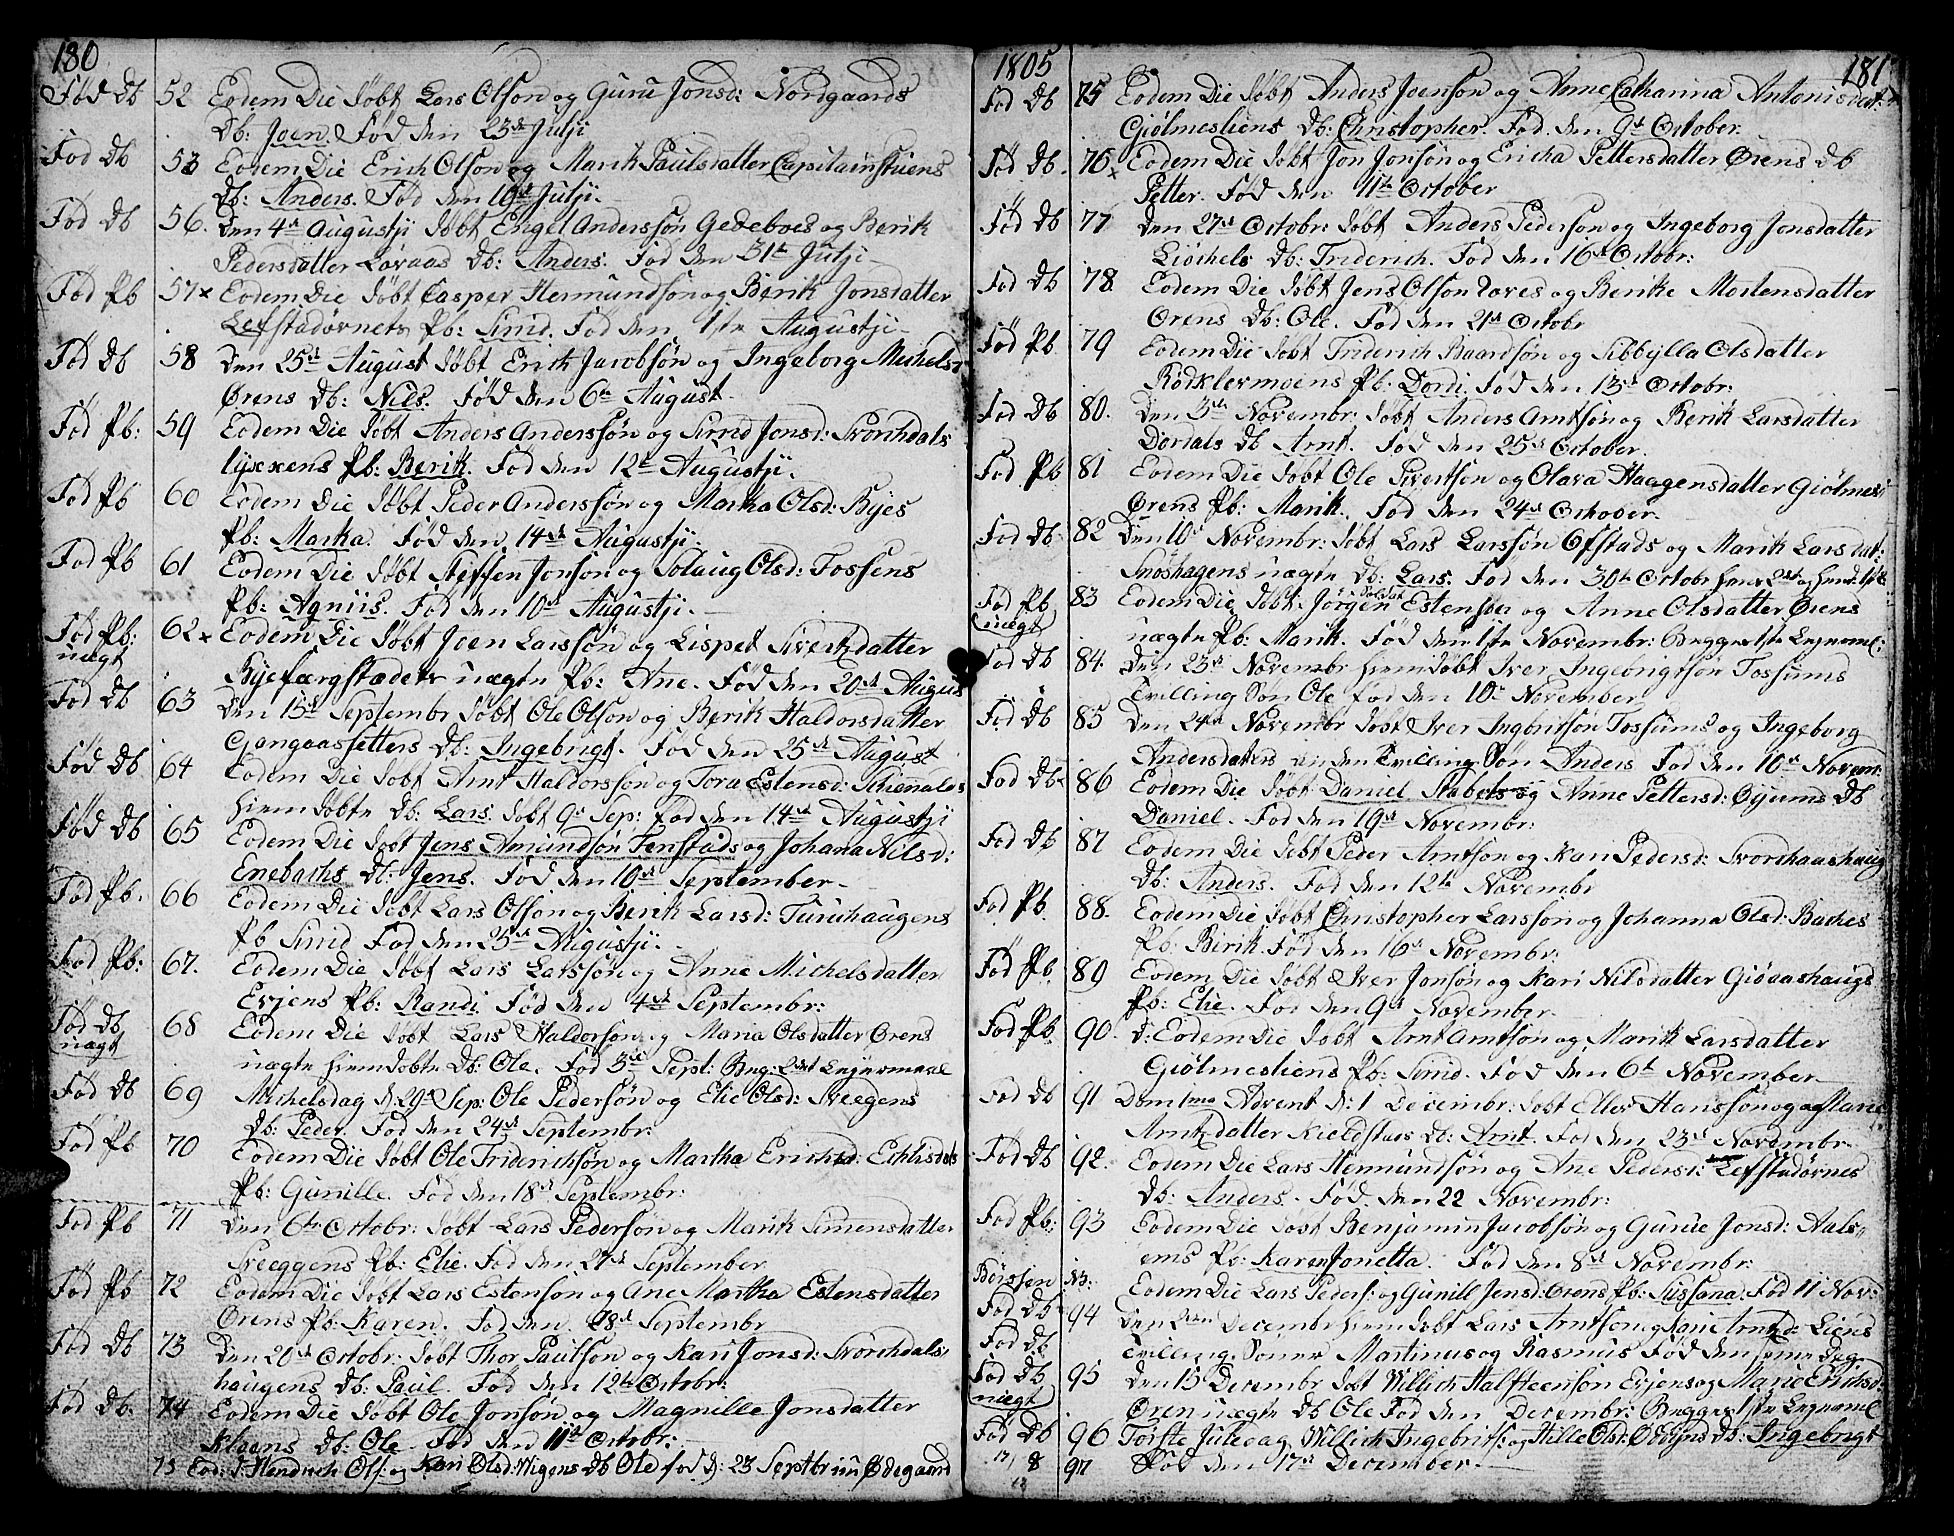 180
Fød Db 52 Eodem Die døbt Lars Olsøn og Guru Jonsd: Nordgaards
Db: Joen. Fød den 23de Julji
Fød Db 53 Eodem Die Erich Olsøn og Marit Paulsdatter Capitainstuens
Db: Anders. Fød den 19de Julji.
Fød Db 56. Den 4de Augustji døbt Engel Anderssøn Gedeboes og Berit
Pedersdatter Løvaas Db: Anders. Fød den 31te Julji
Fød Pb 57 x Eodem Die døbt Casper Hermundsøn og Berit Jonsdatter
Lefstadørnets Pb: Sirrid. Fød den 1ste Augustji
Fød Db 58 Den 25de August døbt Erich Jacobsøn og Ingeborg Michelsd:
Ørens Db: Nils. Fød den 6te August
Fød Pb: 59 Eodem Die døbt Anders Anderssøn og Sirrid Jonsd: Svorchdals
lyxxens Pb: Berit. Fød den 12te Augustji.
Fød Pb 60 Eodem Die døbt Peder Anderssøn og Martha Olsd: Byes
Pb: Martha. Fød den 14de Augustji.
Fød Pb 61 Eodem Die døbt Steffen Jonsøn og Solaug Olsd: Fossens
Pb: Agniis. Fød den 10de Augustji.
Fød Pb: 62 x Eodem Die døbt Joen Larssøn og Lispet Sivertsdatter
uægt
Byefærgstædets uægte Pb: Ane. Fød den 20de Augus
Fød Db 63 Den 15de Septembr døbt Ole Olsøn og Berit Haldorsdatter
Gangaassetters Db: Ingebrigt. Fød den 25de August
Fød Db 64 Eodem Die døbt Arnt Haldorssøn og Tora Estensd:
hiemdøbte Db: Lars. døbt 9de Sep: fød den 14de Augustji
Fød Db 65 Eodem Die døbt Jens Amundsøn Fenstads og Johana Nilsd:
Enebachs Db: Jens. Fød den 10de September
Fød Pb. 66 Eodem Die døbt Lars Olsøn og Berit Larsd: Turuhaugens
Pb Sirrid Fød den 25de Augustji.
Fød Pb: 67. Eodem Die døbt Lars Larssøn og Anne Michelsdatter
Evjens Pb: Randi. Fød den 4de Septembr:
Fød Db 68 Eodem Die døbt Lars Haldorsøn og Maria Olsdatter Ørens
uægt
uægte hiemdøbte Db: Ole. Fød 3de Sept: Beg: 2det Lejermaal
Fød Db 69 Michelsdag d: 29de Sep: Ole Pedersøn og Elie Olsd: Sveegens
Db: Peder. Fød den 24de Septembr:
Fød Pb 70 Eodem Die døbt Ole Friderichsøn og Martha Erichsd:
Pb: Gunille. Fød den 18de Septembr:
Fød Pb 71 Den 6te Octobr: døbt Lars Pedersøn og Marit Simensdatter
Sveeggens Pb: Elie. Fød den 27de September
Fød Pb 72 Eodem Die døbt Lars Estensøn og Ane Martha Estensdatter
Ørens Pb: Karen. Fød den 28de Septembr
Fød Db 73 Den 20de Octobr: døbt Thor Paulsøn og Kari Jonsd: Svorchdals
haugens Db: Paul. Fød den 12te Octobr:
Fød Db. 74 Eodem Die døbt Ole Jonsøn og Magnille Jonsdatter
Kloens Db: Ole. Fød den 11te Octobr:
75 Eod: d: Hendrich Ols: og Kari Olsd: Wigens Db Ole fød d: 23 Septbr iiii Ødegaard
1805
181
Fød Db 75 Eodem Die døbt Anders Joensøn og Anne Catharina Antonisdat:
Gjølmesliens Db: Christopher. Fød den 9de October:
Fød Db. 76 x Eodem Die døbt Jon Jonsøn og Ericha Pettersdatter Ørens Db
Petter. Fød den 11te October
Fød Db 77 Den 27de Octobr: døbt Anders Pedersøn og Ingeborg Jonsdatter
Liøchels Db: Friderich. Fød den 16de Octobr:
Fød Db 78. Eodem Die døbt Jens Olsøn og Berithe Mortensdatter
Ørens Db: Ole. Fød den 21de Octobr
Fød Pb 79 Eodem Die døbt Friderich Baardsøn og Sibbylla Olsdatter
Rødklermoens Pb: Dordi. Fød den 13de Octobr:
Fød Db 80. Den 3de Novembr: døbt Anders Arntsøn og Berit Larsdatter
Dordals Db Arnt. Fød den 25de October.
Fød Pb 81 Eodem Die døbt Ole Sivertsøn og Olava Haagensdatter Giølmes
Ørens Pb: Marit. Fød den 24de October.
Fød Db 82 Den 10de Novembr: døbt Lars Larssøn Ofstads og Marit Larsdat:
Snøshagens uægte Db: Lars. Fød den 30te Octobr hans 2det og hend: 1ste
Fød Pb 83 Eodem Die døbt Soldat Jørgen Estensøn og Anne Olsdatter Ørens
uægt
uægte Pb: Marit. Fød den 1ste Novembr: Begges 1ste Lejerml:
Fød Db 84. Den 23de Novembr hiemdøbt Iver Ingebrigtsøn Fossums
Tvilling Søn Ole fød den 10de November
Fød Db 85 Den 24de Novembr døbt Iver Ingbritsøn Fossums og Ingeborg
Andersdatters anden Tvilling Søn Anders Fød den 10de Novem:
Fød Db 86 Eodem Die døbt Daniel Stabels og Anne Pettersd: Øyums Db
Daniel. Fød den 19de Novembr:
Fød Db 87 Eodem Die døbt Peder Arntsøn og Kari Pedersd: Svorchaashaug
Db: Anders. Fød den 12te Novembr
Fød Pb. 88. Eodem Die døbt Christopher Larssøn og Johanna Olsd: Baches
Pb: Birit. Fød den 16de Novembr:
Fød Pb. 89 Eodem Die døbt Iver Jonsøn og Kari Nilsdatter Giøaashaugs
Pb: Elie. Fød den 9de November.
Fød Pb. 90. d: Eodem Die døbt Arnt Arntsøn og Marit Larsdatter
Giølmesliens Pb: Sirrid. Fød den 6te November
Fød Db 91 Dom 1ma Advent d: 1 Decembr: døbt Ellev Hanssøn og Mari
Arntsdatter Kieldstads Db: Arnt. Fød den 23de Novembr
Fød Db 92. Eodem Die Lars Hermundsøn og Ane Pedersd: Lefstadørnes
Db: Anders. Fød den 22 Novembr:
Fød Pb: 93 Eodem Die døbt Benjamin Jacobsøn og Gurue Jonsd: Aals-
ems Pb: Karen Jonetta. Fød den 8de Novembr:
Børssen N3: Eodem Die Lars Peders: og Gunill Jensd: Ørens Pb: Sussana. Fød 11 Nov:
Fød Db 94 Den 2den Decembr hiemdøbt Lars Arntsøn og Kari Arntsd: Liens
Fød Db. Tvilling Sønner Martinus og Rasmus Fød den samme dag
Fød Db 95 Den 15 Decembr døbt Willich Halfteensøn Evjens og Marie Erichsd:
uægt Øren uægte Db Ole Fød den Decembr: Begges 1ste Lejermel
Fød Db 96 Første Juledag Willich Ingebrits: og Hille Olsd: Ødbynd Db: Ingebrigt
17/8 97 Fød den 17de December.